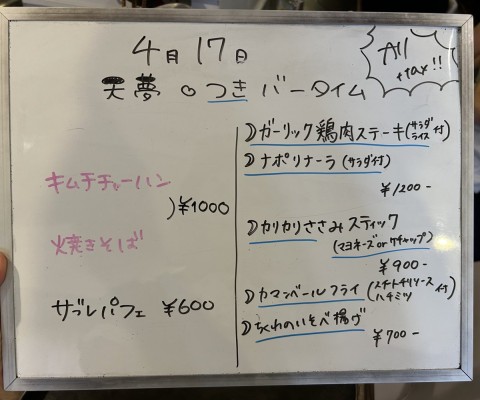 4月17日
天夢 つき バータイム
All
+tax!!
キムチチャーハン
)¥1000
焼きそば
サブレパフェ ¥600
ガーリック鶏肉ステーキ(サラダ ライス付)
ナポリナーラ(サラダ付)
¥1200-
カリカリささみスティック
(マヨネーズorケチャップ)
¥900-
カマンベールフライ(スイートチリソース ハチミツ 付)
ちくわのいそべ揚げ
¥700-